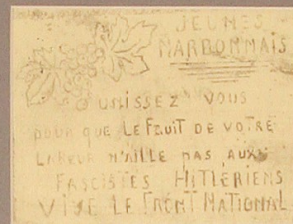 JEUNES
NARBONNAIS
UNISSEZ VOUS
POUR QUE LE FRUIT DE VOTRE
LABEUR N'AILLE PAS AUX
FASCISTES HITLERIENS
VIVE LE FRONT NATIONAL